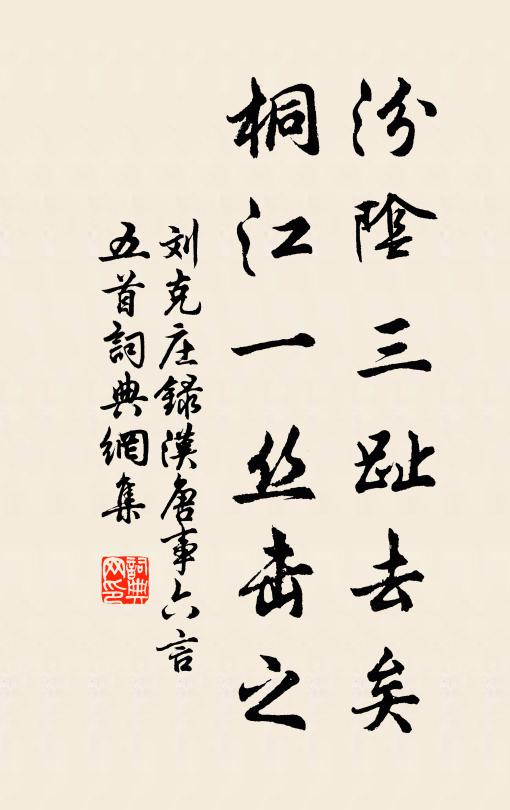 汾陰三趾去矣
桐江一丝击之
刘克庄録漢唐事六言
五首詞典網集
詞典
网印